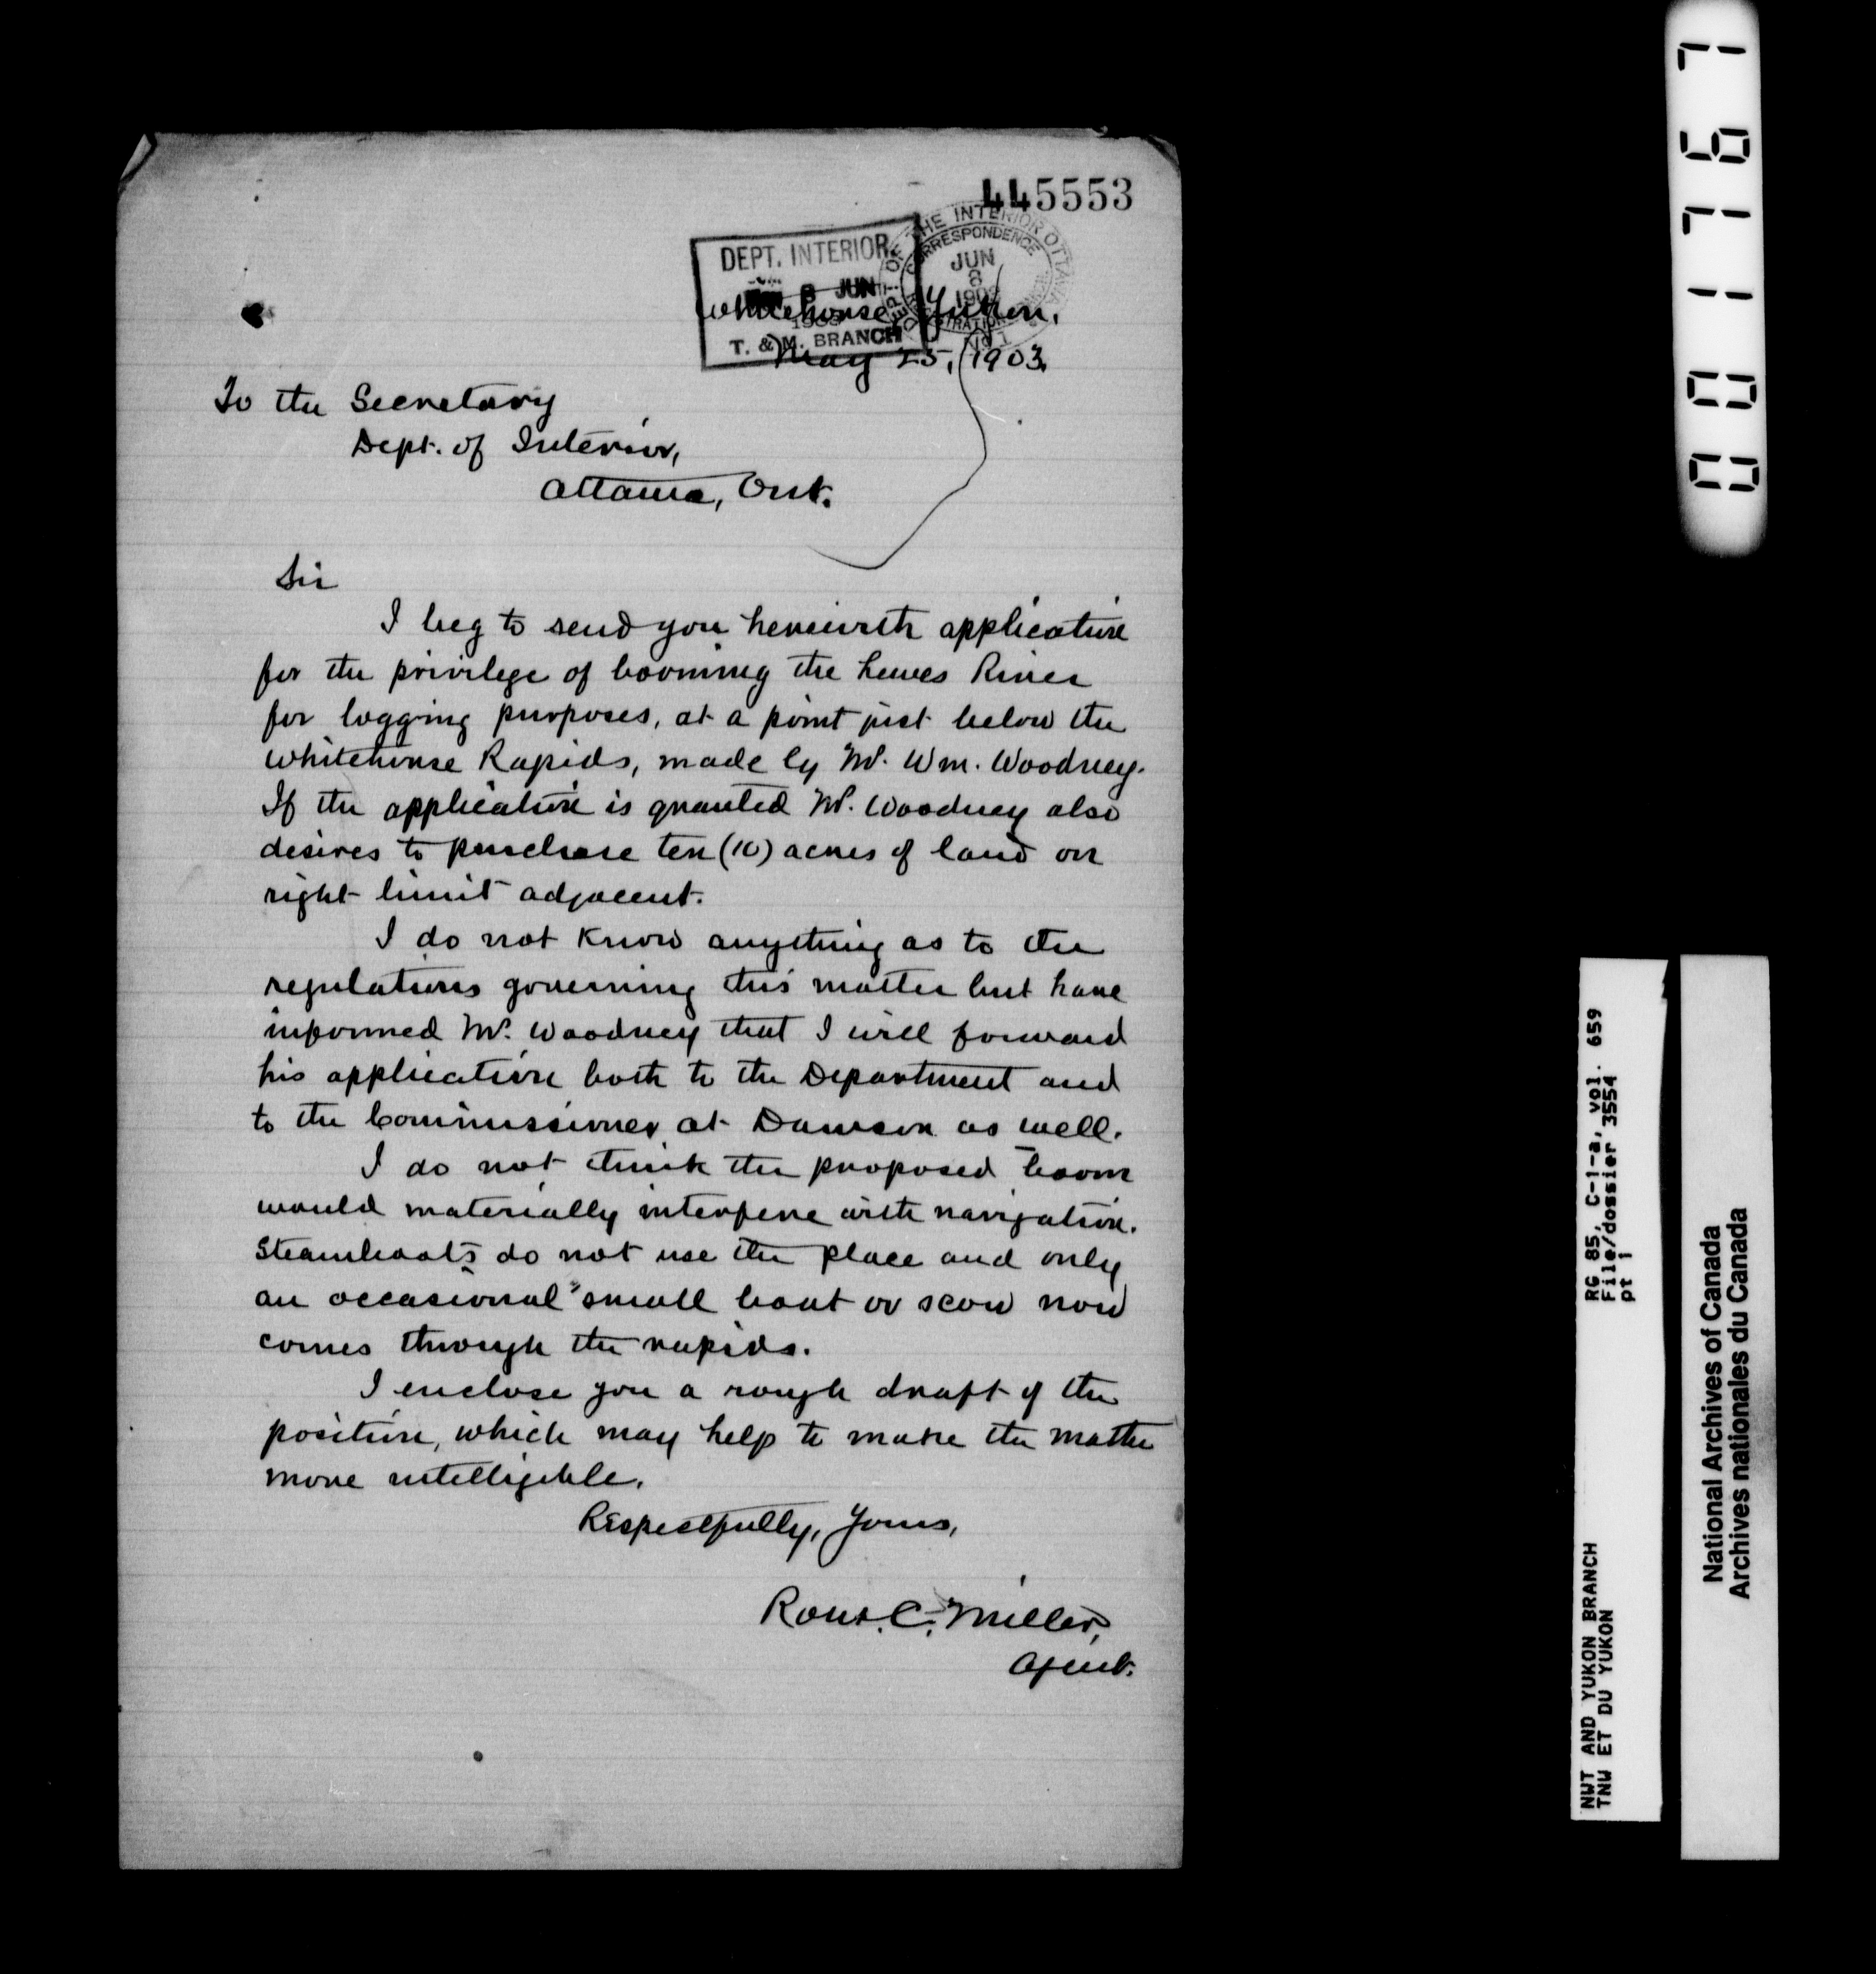 445553
DEPT. INTERIOR
8 JUN
1903
T. & M. BRANCH
DEPT. OF THE INTERIOR OTTAWA
CORRESPONDENCE
JUN
8
190
REGISTRATION
No 1
Whitehouse, Yukon.
May 25, 1903.
To the Secretary
Dept. of Interior,
Ottawa, Ont.
Sir
I beg to send you herewith application
for the privilege of booming the Lewes River
for logging purposes, at a point just below the
Whitehouse Rapids, made by Mr. Wm. Woodney.
If the application is granted Mr. Woodney also
desires to purchase ten (10) acres of land on
right limit adjacent.
I do not know anything as to the
regulations governing this matter but have
informed Mr. Woodney that I will forward
his application both to the Department and
to the Commissioner at Dawson as well.
I do not think the proposed boom
would materially interfere with navigation.
Steamboats do not use the place and only
an occasional small boat or scow now
comes through the rapids.
I enclose you a rough draft of the
position, which may help to make the matter
more intelligible.
Respectfully, Yours,
Robt. C. Miller,
Agent.
001767
RG 85, C-1-a, vol. 659
File/dossier 3554
pt 1
NWT AND YUKON BRANCH
TNW ET DU YUKON
National Archives of Canada
Archives nationales du Canada